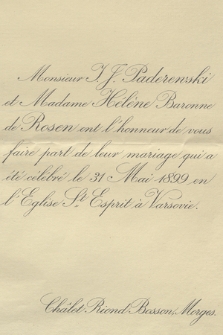 Monsieur I. J. Paderewski
et Madame Hélène Baronne
de Rosen ont l'honneur de vous
faire part de leur mariage qui a
été célébré le 31 Mai 1899 en
l'Eglise St Esprit à Varsovie.
Châlet Riond-Bosson, Morges.